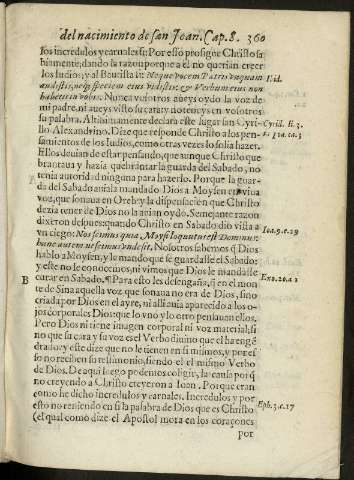 del nacimiento de san Joan. Cap. 8. 360
los incredulos y carnales: Por esso prosigue Christo sa-
biamente; dando la razon porque a el no querian creer
los Iudios; y al Bautista si: Neque vocem Patris vnquam
audistis, neque speciem eius vidistis: & Verbum eius non
habetis in vobis. Nunca vuiotros aueys oydo la voz de
mi padre, ni aueys visto su cara, y no teneys en vosotros
su palabra. Altissimamente declara este lugar san Cyri-
llo Alexandrino. Dize que responde Christo a los pen-
samientos de los Iudios, como otras vezes lo solia hazer.
Ellos deuian de estar pensando, que aunque Christo que
brantaua y hazia quebrantar la guarda del Sabado, no
tenia autoridad ninguna para hazerlo. Porque la guar-
da del Sabado auiala mandado Dios a Moysen en viua
voz, que sonaua en Oreb y la dispensacion que Christo
dezia tener de Dios no la auian oydo. Semejante razon
dixeron despues: quando Christo en Sabado dio vista a
vn ciego: Nos scimus quia Moysi loquutus est Dominus:
hunc autem nescimus vnde sit. Nosotros sabemos q̃ Dios
hablo a Moysen, y le mando que se guardasse el Sabado:
y este no le conocemos, ni vimos que Dios le mandasse
curar en Sabado. ¶ Para esto les desengaña, q̃ en el mon
te de Sina aquella voz que sonaua no era de Dios, sino
criada por Dios en el ayre, ni alli auia aparecido a los o-
jos corporales Dios: que lo vno y lo otro pensauan ellos.
Pero Dios ni tiene imagen corporal ni voz material; si
no que su cara y su voz es el Verbo diuino que el ha engẽ
drado: y este dize que no le tienen en si mismos, y por es
so no reciben su testimonio, siendo el el mismo Verbo
de Dios. De aqui luego podemos colegir, la causa porq̃
no creyendo a Christo creyeron a Ioan. Porque eran
como he dicho incredulos y carnales. Incredulos y por
esto no teniendo en si la palabra de Dios que es Christo
(el qual como dize el Apostol mora en los coraçones
por
B
Cyril. li. 3.
Ioa. 9. c. 29
Exo. 20. a 1
Eph. 3. c. 17